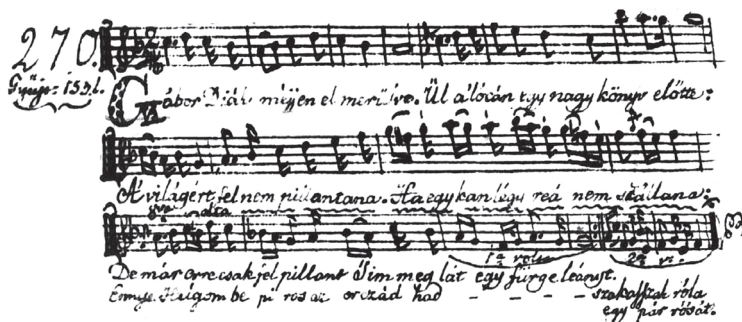 270.
Gyűjt: 1551.
Gábor Diák mėjjen el merülve. Ül a lócán egy nagy könyv előtte:
A' világért fel nem pillantana. Ha egy kan légy reá nem szállana:
8va alta
De már erre csak fel pillant S im meg lát egy fürge leányt.
1ª volta 2ª v.
Húgom be piros az orczád had - - - - - szakasszak róla
egy pár rósát.